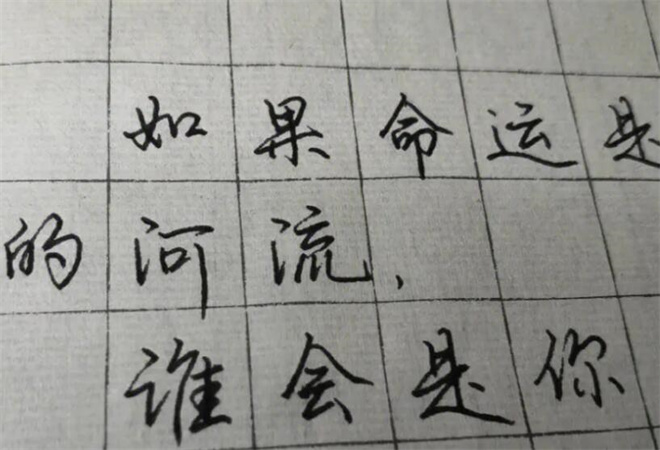 如果命运是
的河流,
谁会是你